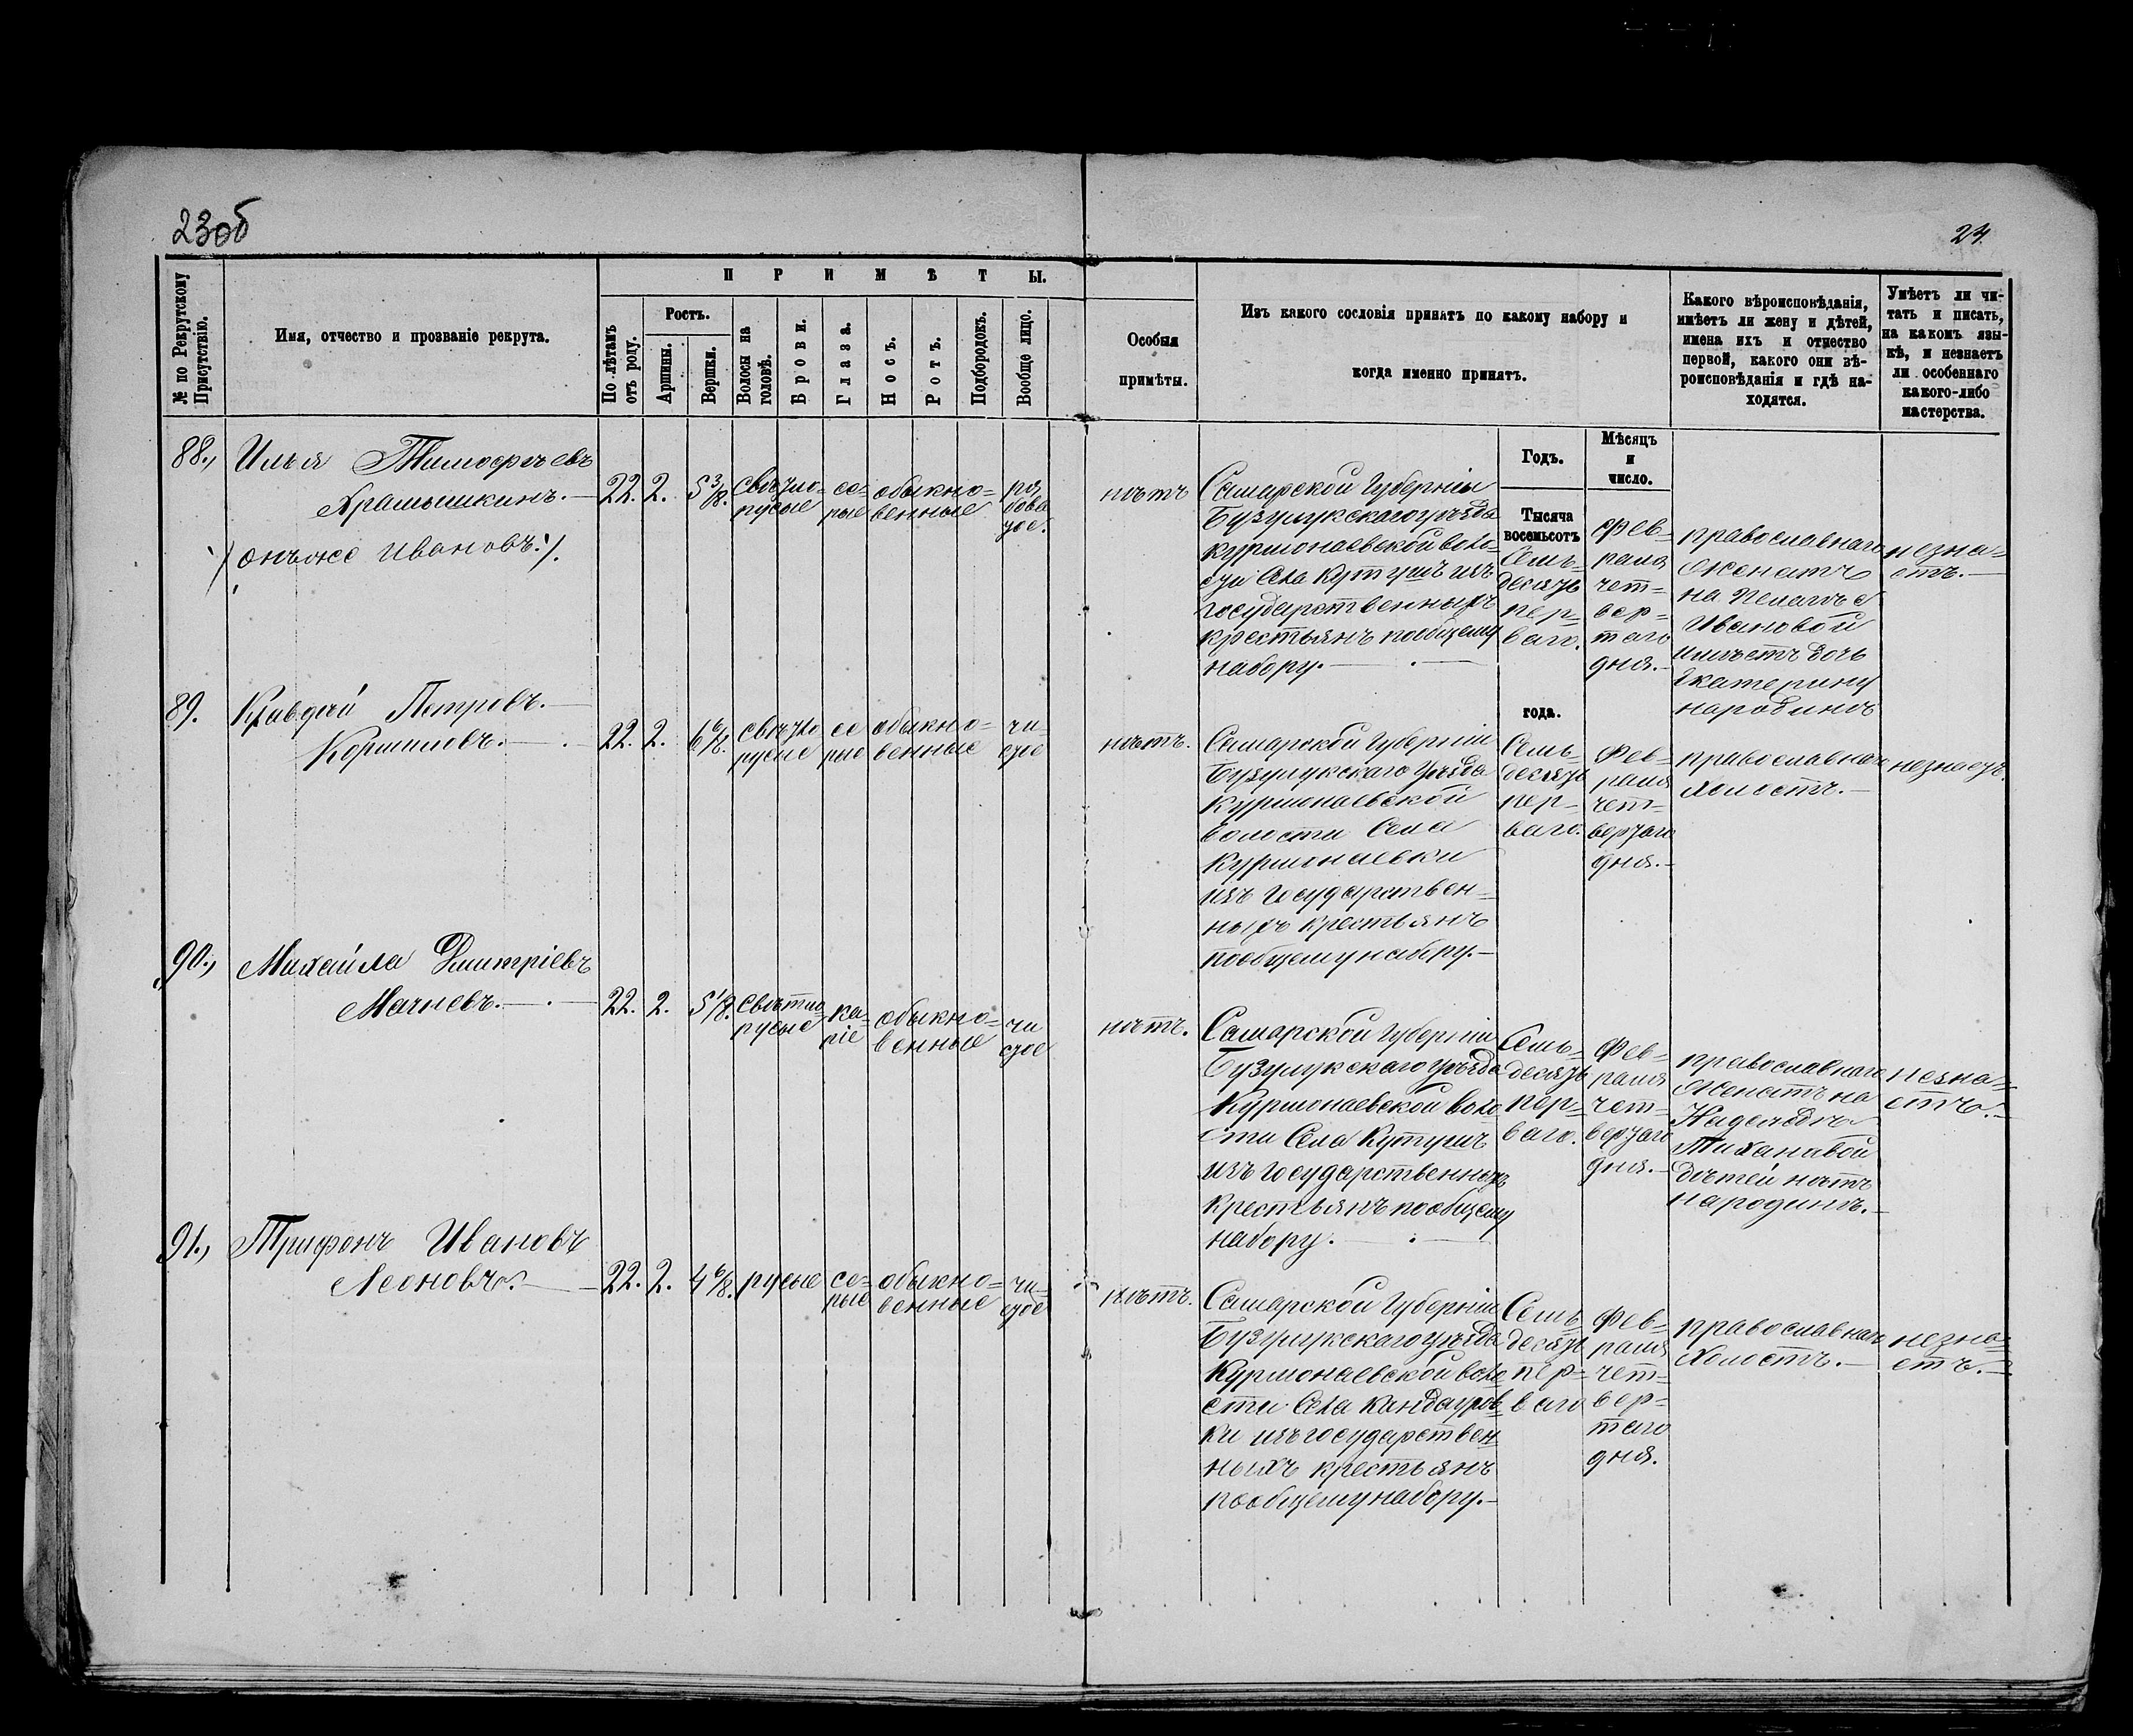 23об
24.
№ по Рекрутскому Присутствію.
Имя, отчество и прозваніе рекрута.
ПРИМѢТЫ.
По лѣтамъ отъ роду.
Ростъ.
Аршины.
Вершки.
Волосы на головѣ.
Брови.
Глаза.
Носъ.
Ротъ.
Подбородокъ.
Вообще лицо.
Особыя
примѣты.
Изъ какого сословія принятъ по какому набору и
когда именно принятъ.
Какого вѣроисповѣданія,
имѣетъ ли жену и дѣтей,
имена ихъ и отчество
первой, какого они вѣ-
роисповѣданія и гдѣ на-
ходятся.
Умѣетъ ли чи-
тать и писать,
на какомъ язы-
кѣ, и незнаетъ
ли особеннаго
какого-либо
мастерства.
Годъ.
Мѣсяцъ
и
число.
Тысяча
восемьсотъ
88.,
Илья Тимофѣевъ
Храмышкинъ.
онъже Ивановъ:/.
22.
2.
5 3/8.
свѣтло=
русые
се=
рые
обыкно=
венные
ря
бова
тое.
нѣтъ
Самарской Губерніи
Бузулукскаго уѣзда
Курмонаевской воло=
сти Села Кутушъ изъ
государственныхъ
крестьянъ пообщему
набору.
Семь=
десятъ
пер=
ваго.
Фев=
раля
чет=
вер=
таго
дня.
православнаго
женатъ
на Пелагѣе
Ивановой
имѣетъ дочь
Екатерину
народинѣ
незна=
етъ.
года.
89.
Петровъ.
22.
2.
6 6/8.
свѣтло
русые
се
рые
обыкно=
венные
чи=
стое
нѣтъ.
Самарской Губерніи
Бузулукскаго Уѣзда
Курмонаевской
волости Села
Курмонаевки
изъ Государствен=
ныхъ крестьянъ
пообщему набору.
Семь=
десятъ
пер=
ваго.
Фев=
раля
чет=
вертаго
дня.
православнаго
холостъ.
незнаетъ.
90.,
Михайла Дмитріевъ
Мачневъ.
22.
2.
5 1/8.
свѣтло
русые
ка=
ріе
обыкно=
венные
чи
стое
нѣтъ.
Самарской Губерніи
Бузулукскаго уѣзда
Курмонаевской воло
сти Села Кутушъ
изъ государственныхъ
крестьянъ пообщему
набору.
Семь=
десятъ
пер=
ваго.
Фев=
раля
чет=
вертаго
дня.
православнаго
Женатъ на
Надеждѣ
Тихановой
дѣтей нѣтъ
народинѣ.
незна=
етъ.
91.,
Трифонъ Ивановъ
Леоновъ.
22.
2.
4 6/8.
русые
се=
рые
обыкно=
венные
чи=
стое
нѣтъ.
Самарской Губерніи
Бузулукскаго уѣзда
Курмонаевской воло
сти Села Кандауров=
ки изъ государствен
ныхъ крестьянъ
пообщему набору.
Семь
десятъ
пер=
ваго
Фев=
раля
чет=
вер=
таго
дня.
православнаго
Холостъ.
незна=
етъ.